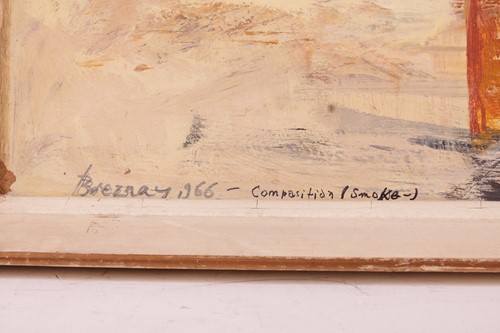 Breznay 1966 – Composition (Smoke–)